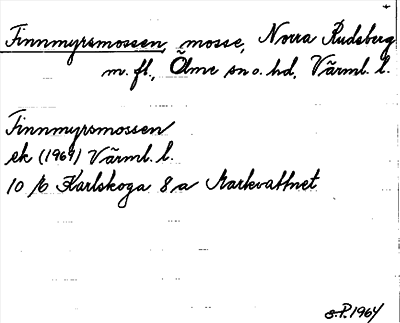 Finnmyrsmossen, mosse, Norra Rudsberg
m. fl., Ölme sn o. hd, Värml. l.
Finnmyrsmossen
ek (1964) Värml. l.
10 /6 Karlskoga 8 a Markvattnet
S.P. 1964